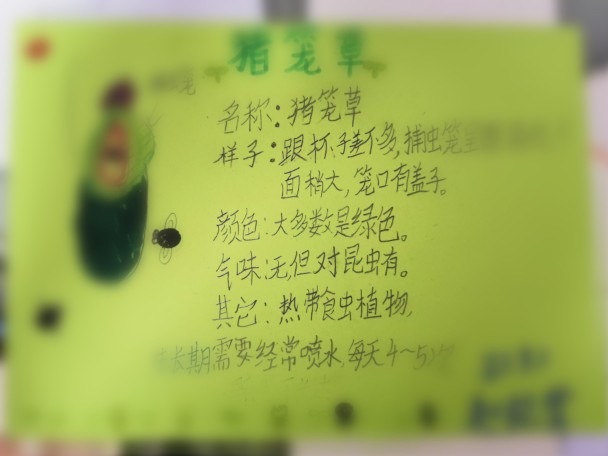 猪笼草
名称:猪笼草
样子:跟杯子差不多,捕虫笼
面稍大,笼口有盖子。
颜色:大多数是绿色。
气味:无,但对昆虫有。
其它:热带食虫植物,
长期需要经常喷水,每天4~5次